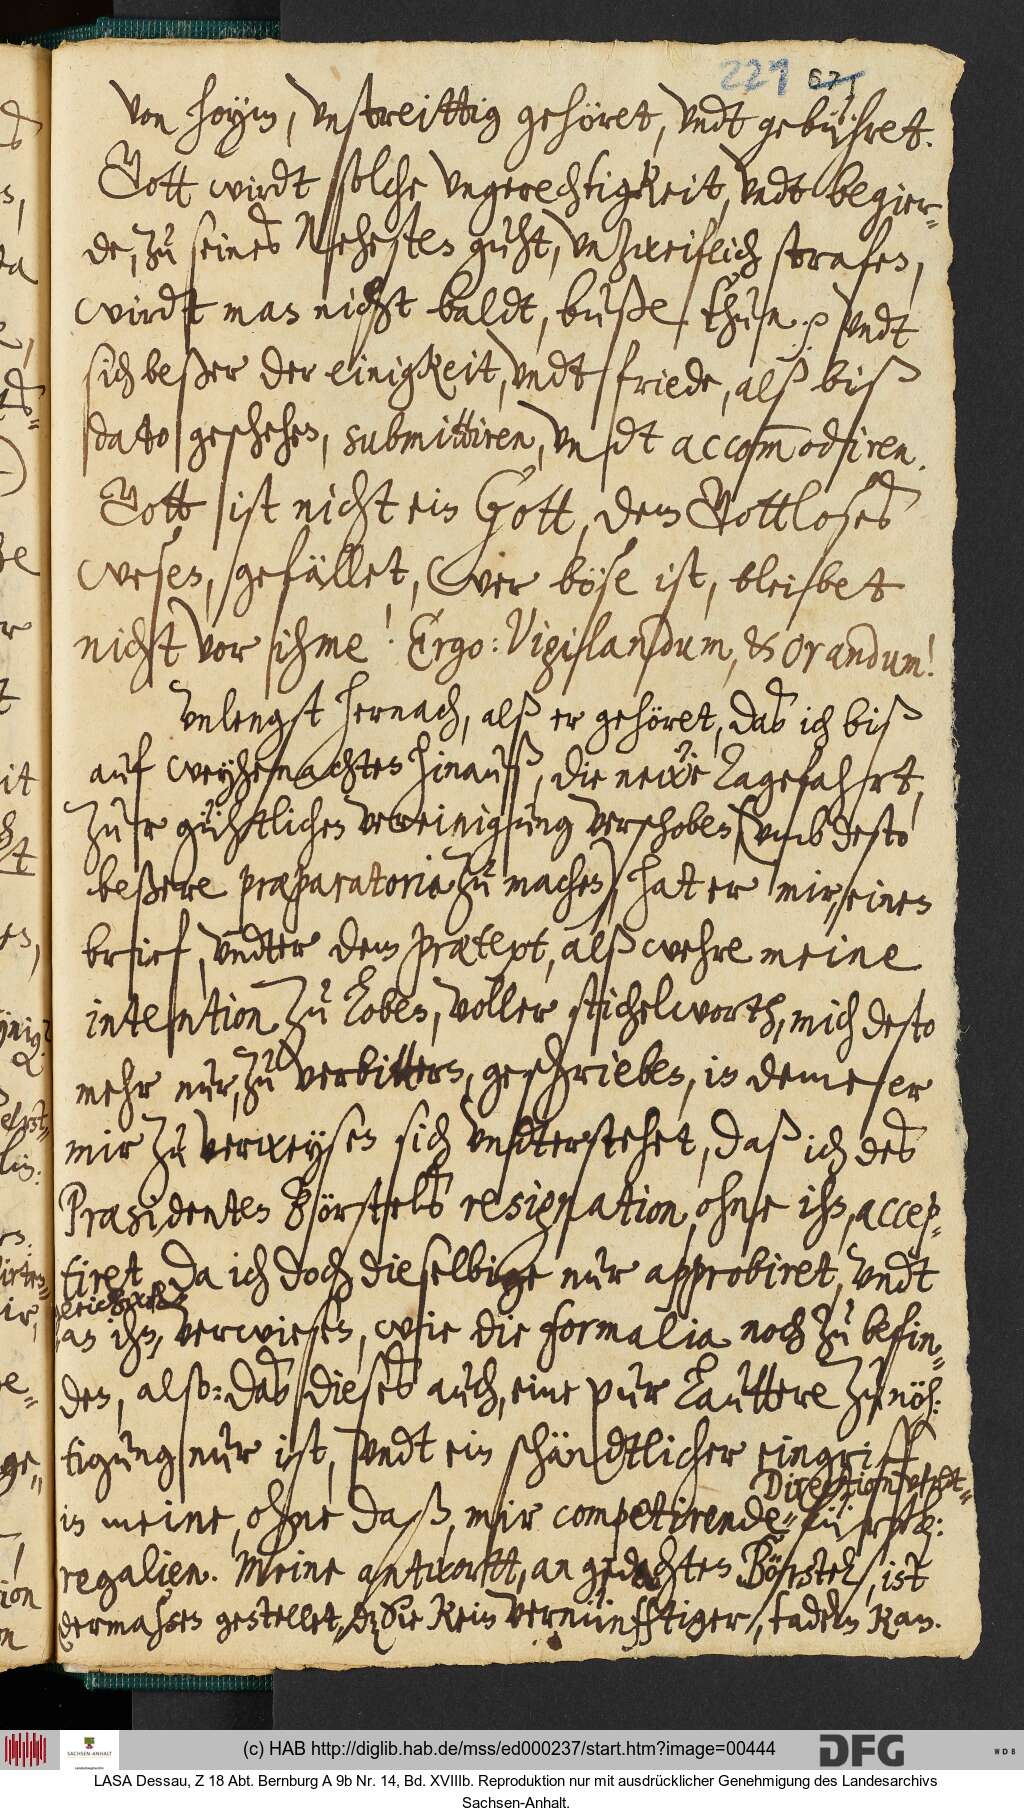 229 621
von Hoym, vnstreittig gehöret, vndt gebühret.
Gott wirdt solche vngerechtigkeit, vndt begier-
de, zu seines Nehesten guht, vnzweiflich strafen,
wirdt man nicht baldt, buße thun? vndt
sich beßer der einigkeit, vndt friede, alß biß
dato geschehen, submittiren, vndt accom̅odiren.
Gott ist nicht ein Gott, dem Gottloses
wesen, gefället, wer böse ist, bleibet
nicht vor ihme! Ergo: Vigilandum, & orandum!
vnlengst hernach, alß er gehöret, das ich biß
auf weyhenachten hinauß, die newe Tagefahrt,
zur gühtlichen vereinigung verschoben (vmb desto
beßere præparatoria zu machen) hat er mir, einen
brief, vndter dem prætext, alß wehre meine
intention zu loben, voller stichelworth, mich desto
mehr nur, zu verbittern, geschrieben, in deme er
mir zu verweysen sich vndterstehet, daß ich des
Præsidenten Börstels resignation, ohne ihn, accep-
tiret, da ich doch dieselbige nur approbiret, vndt
an ihn, verwiesen, wie die formalia noch zu befin-
den, also: das dieses auch, eine pur lauttere zunöh:
tigung nur ist, vndt ein schändtlicher eingriff
Direction vndt
in meine, ohne daß, mir competirende
regalien. Meine antwortt, an gedachten Börstel, ist
dermaßen gestellet, dz Sie kein vernünfftiger, tadeln kan.
(c) HAB http://diglib.hab.de/mss/ed000237/start.htm?image=00444
SACHSEN-ANHALT
DFG
WDB
LASA Dessau, Z 18 Abt. Bernburg A 9b Nr. 14, Bd. XVIIIb. Reproduktion nur mit ausdrücklicher Genehmigung des Landesarchivs
Sachsen-Anhalt.